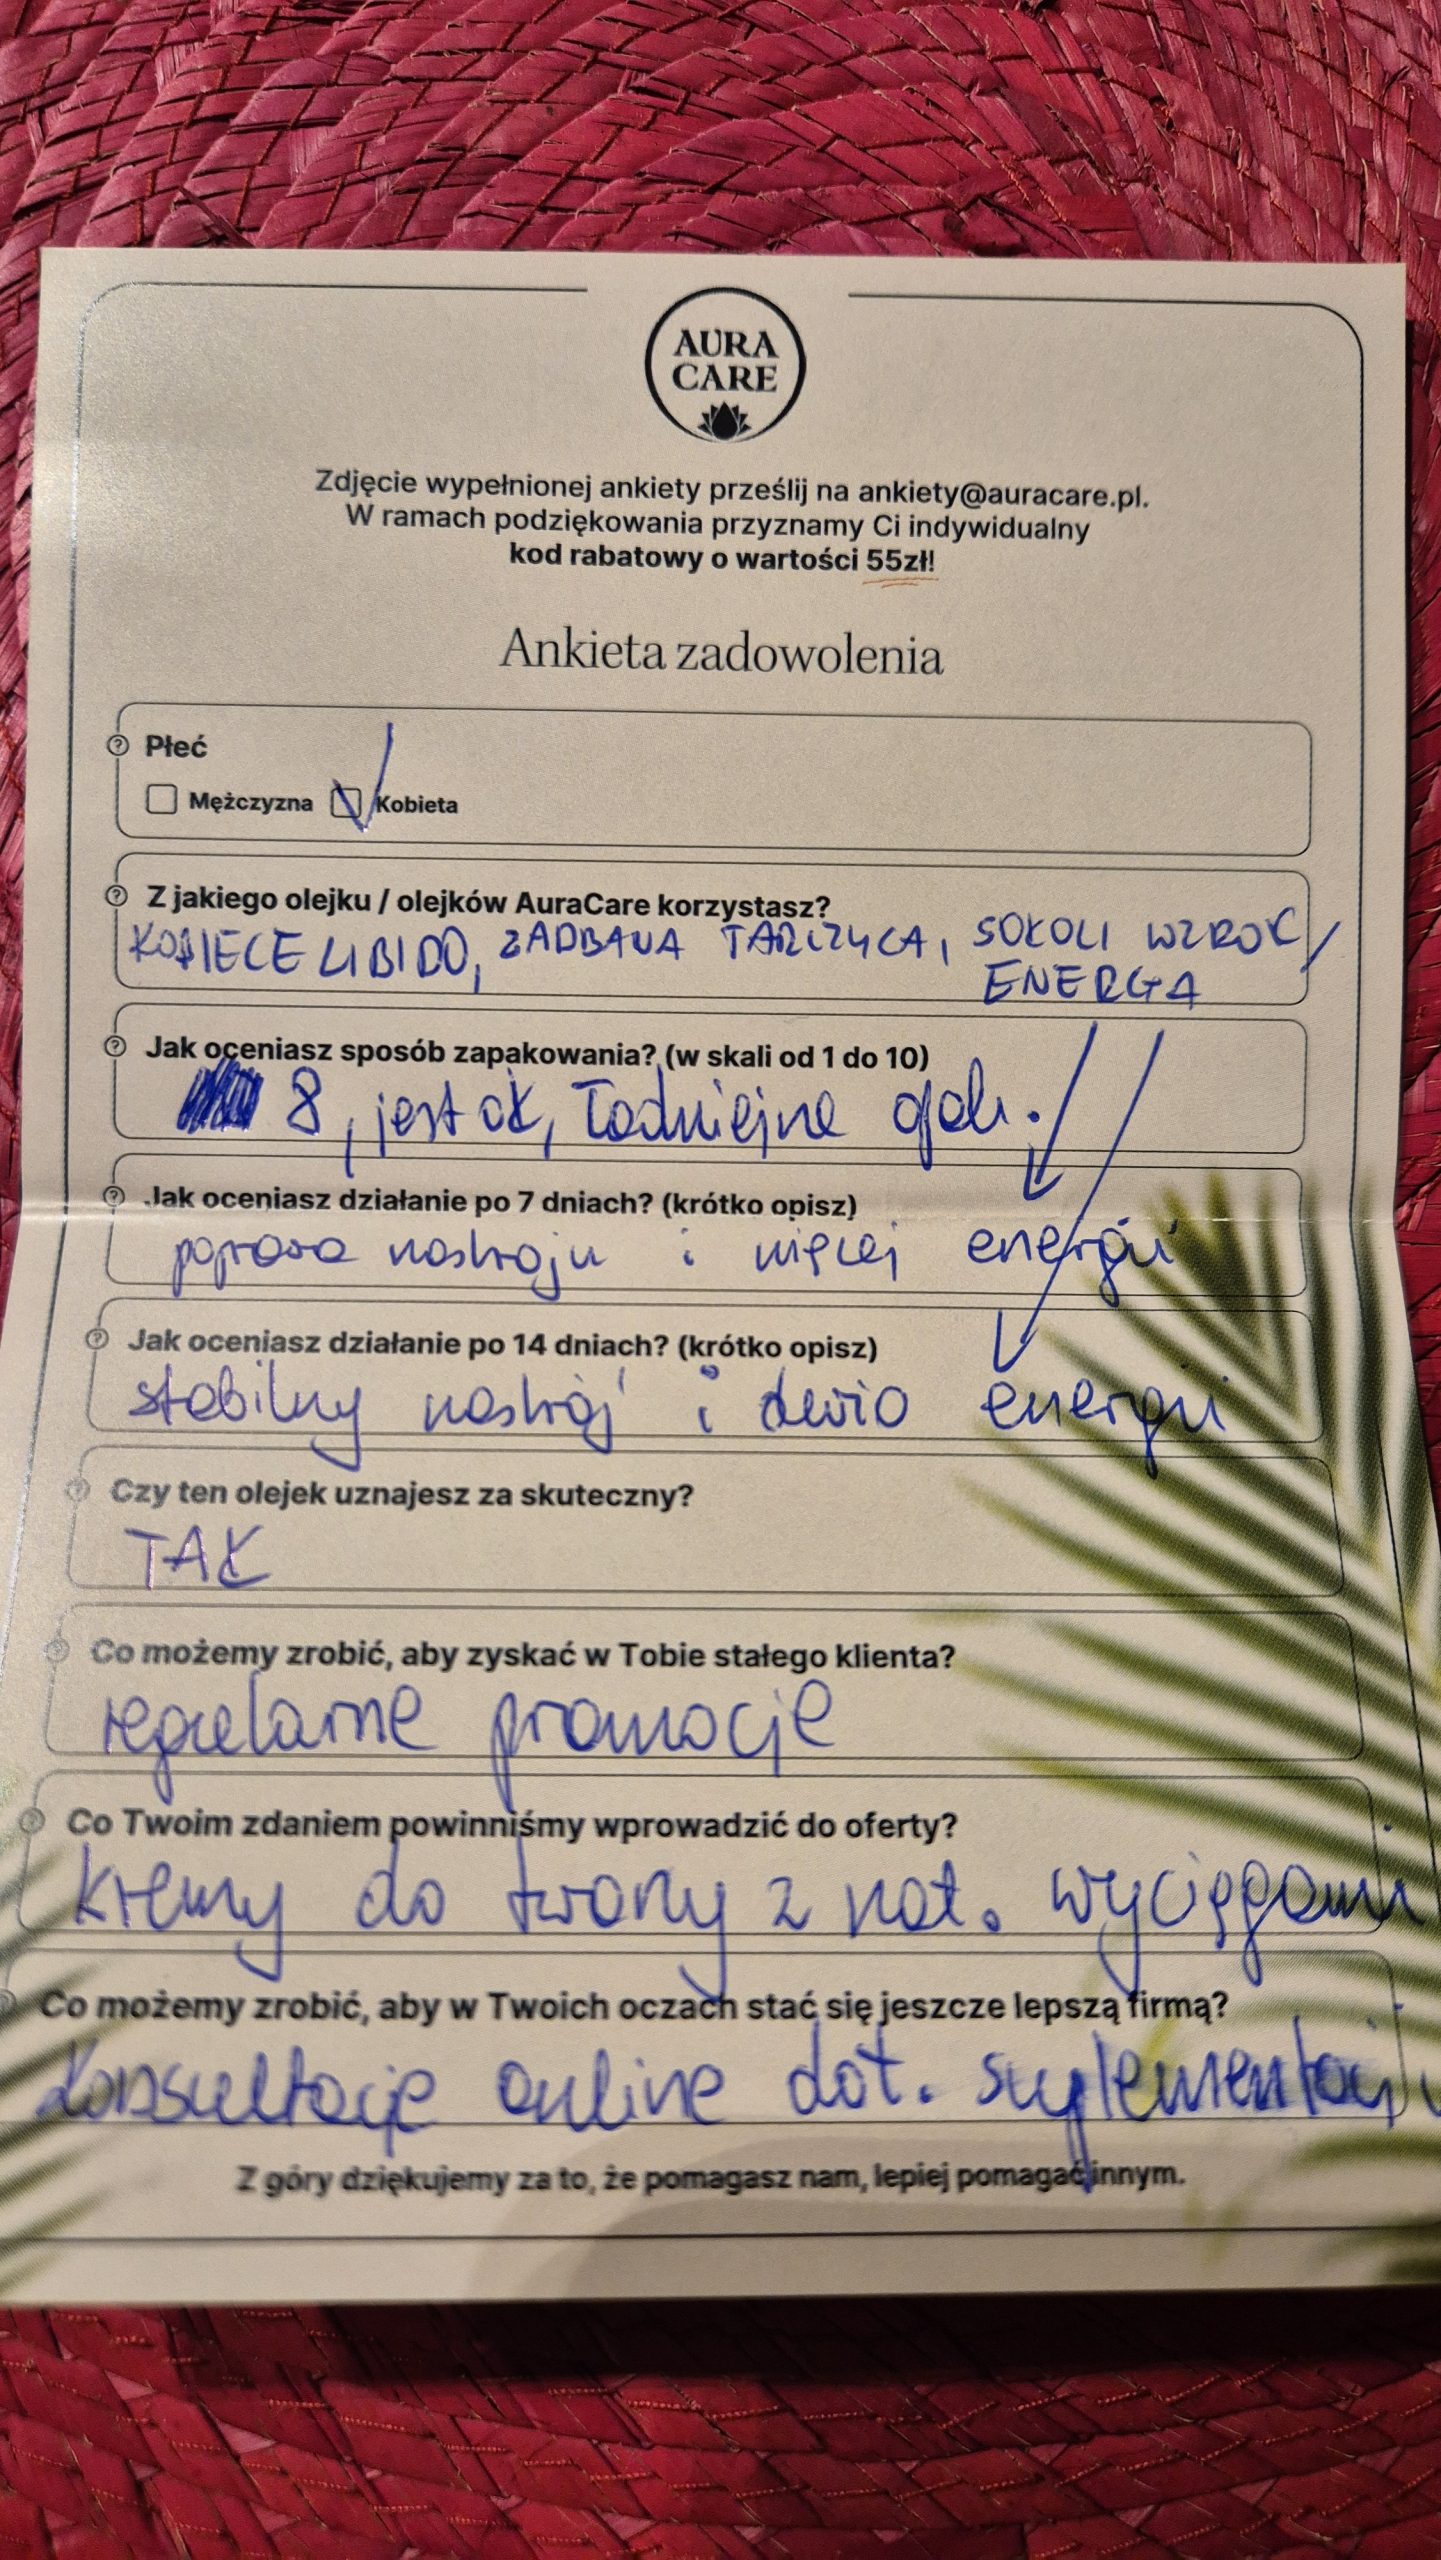 AURA
CARE
Zdjęcie wypełnionej ankiety prześlij na ankiety@auracare.pl.
W ramach podziękowania przyznamy Ci indywidualny
kod rabatowy o wartości 55zł!
Ankieta zadowolenia
Płeć
Mężczyzna Kobieta
Z jakiego olejku / olejków AuraCare korzystasz?
KOBIECE LIBIDO, ZADBANA TARCZYCA, SOKOLI WZROK,
ENERGA
Jak oceniasz sposób zapakowania? (w skali od 1 do 10)
8, jest ok, ładniejne
Jak oceniasz działanie po 7 dniach? (krótko opisz)
poprawa nastroju i więcej energii
Jak oceniasz działanie po 14 dniach? (krótko opisz)
stabilny nastrój i dużo energii
Czy ten olejek uznajesz za skuteczny?
TAK
Co możemy zrobić, aby zyskać w Tobie stałego klienta?
regularne promocje
Co Twoim zdaniem powinniśmy wprowadzić do oferty?
kremy do twarzy z nat. wyciągami
Co możemy zrobić, aby w Twoich oczach stać się jeszcze lepszą firmą?
konsultacje online dot. suplementacji
Z góry dziękujemy za to, że pomagasz nam, lepiej pomagać innym.